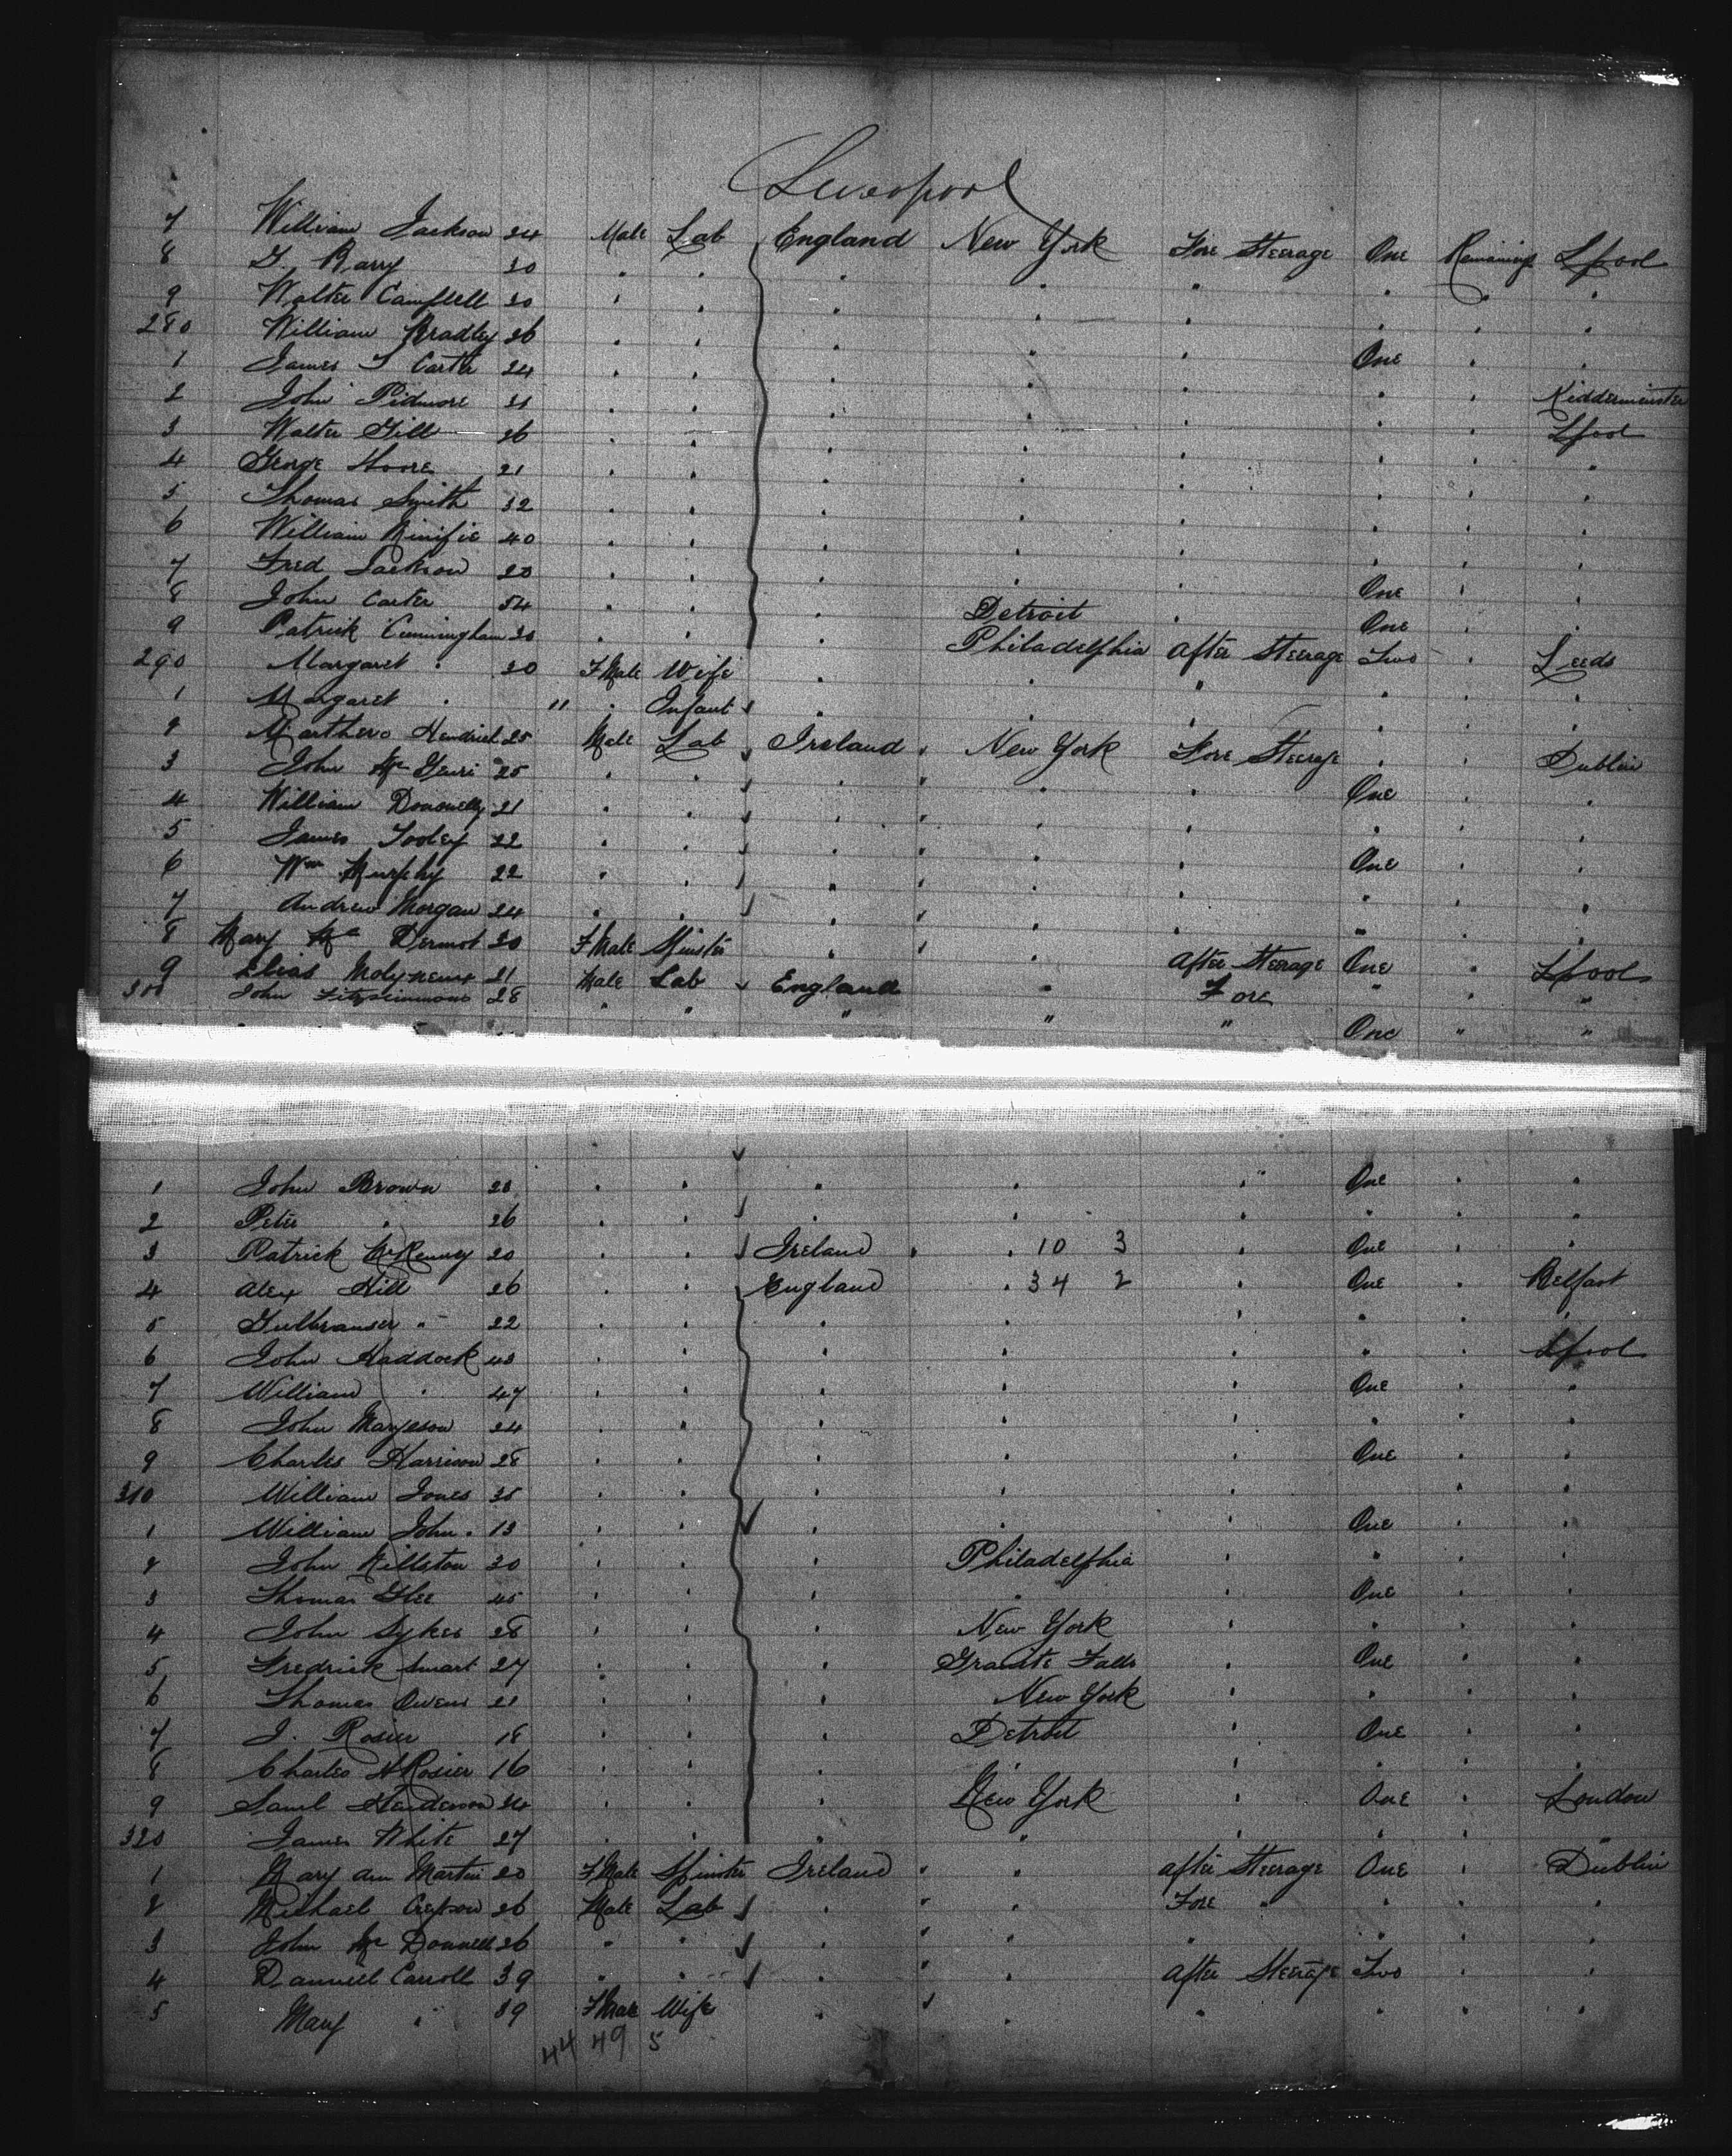 Liverpool
7 William Jackson 24 Male Lab England New York Fore Steerage One Remaining Lpool
8 G. Barry 30 " " " " " " " "
9 Walter Campbell 30 " " " " " " " "
280 William Bradley 26 " " " " " One " "
1 James T Carter 24 " " " " " " " Kidderminster
2 John Pidmore 31 " " " " " " " Lpool
3 Walter Gill 26 " " " " " " " "
4 George Moore 21 " " " " " " " "
5 Thomas Smith 32 " " " " " " " "
6 William 40 " " " " " " " "
7 Fred Jackson 20 " " " " " One " "
8 John Carter 54 " " " Detroit " One " "
9 Patrick Cunningham 20 " " " Philadelphia After Steerage Two " Leeds
290 Margaret " 20 FMale Wife " " " " " "
1 Margaret " " " Infant " " " " " "
2 Hendrick 25 Male Lab Ireland New York Fore Steerage " " Dublin
3 John Mc 25 " " " " " One " "
4 William Donnelly 21 " " " " " " " "
5 James Tooley 22 " " " " " One " "
6 Wm Murphy 22 " " " " " " " "
7 Andrew Morgan 24 " " " " " " " "
8 Mary Mc Dermot 20 FMale Spinster " " After Steerage One " Lpool
9 Elias Molyneux 21 Male Lab England " Fore " " "
300 John Fitzsimmons 28 " " " " " One " "
1 John Brown 28 " " " " " One " "
2 Peter " 26 " " " " " " " "
3 Patrick McKenny 20 " " Ireland " 10 3 " One " "
4 Alex Hill 26 " " England " 34 2 " One " Belfast
5 " 22 " " " " " " " "
6 John Haddock 43 " " " " " " " Lpool
7 William " 47 " " " " " One " "
8 John Marjeson 24 " " " " " " " "
9 Charles Harrison 28 " " " " " One " "
310 William Jones 35 " " " " " " "
1 William John " 13 " " " " " One " "
2 John Hillston 30 " " " Philadelphia " " " "
3 Thomas Glee 45 " " " " " One " "
4 John Sykes 28 " " " New York " " " "
5 Fredrick Smart 27 " " " Granite Falls " One " "
6 Thomas Owens 21 " " " New York " " " "
7 J. Rosier 18 " " " Detroit " One " "
8 Charles H Rosier 16 " " " " " " " "
9 Saml Henderson 24 " " " New York " One " London
320 James White 27 " " " " " " " "
1 Mary Ann Martin 20 FMale Spinster Ireland " After Steerage One " Dublin
2 Michael 26 Male Lab " " Fore " " " "
3 John Mc Donnell 26 " " " " " " " "
4 Danniel Carroll 39 " " " " After Steerage Two " "
5 Mary " 39 FMale Wife " " " " " "
44 49 5